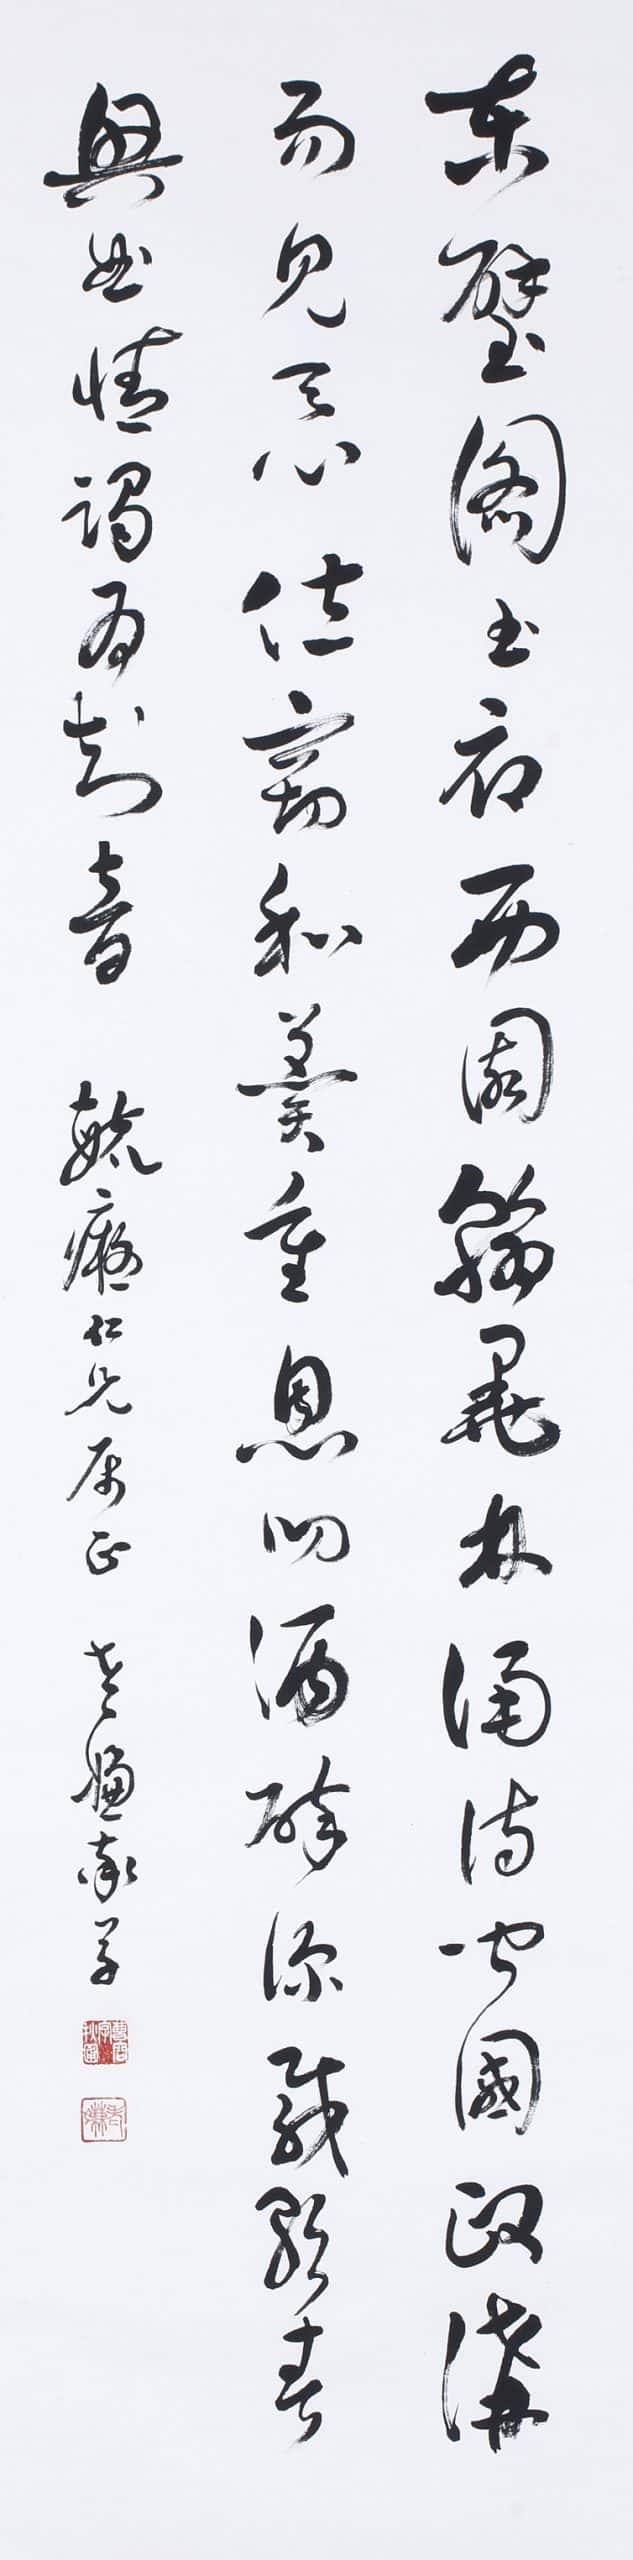 東壁圖書府西園翰墨林誦詩聞國政講
易見天心位竊和羹重恩叨酒醉深載歌春
興曲情竭為知音 毓癡仁兄屬正 老嫌